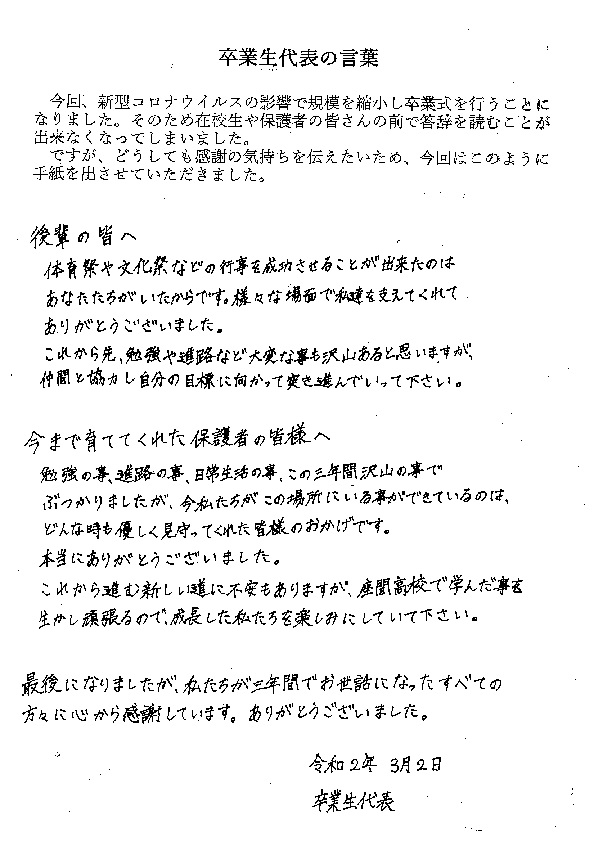 卒業生代表の言葉
今回、新型コロナウイルスの影響で規模を縮小し卒業式を行うことに
なりました。そのため在校生や保護者の皆さんの前で答辞を読むことが
出来なくなってしまいました。
ですが、どうしても感謝の気持ちを伝えたいため、今回はこのように
手紙を出させていただきました。
後輩の皆へ
体育祭や文化祭などの行事を成功させることが出来たのは
あなたたちがいたからです。様々な場面で私達を支えてくれて
ありがとうございました。
これから先、勉強や進路など大変な事も沢山あると思いますが、
仲間と協力し自分の目標に向かって突き進んでいって下さい。
今まで育ててくれた保護者の皆様へ
勉強の事、進路の事、日常生活の事、この三年間沢山の事で
ぶつかりましたが、今私たちがこの場所にいる事ができているのは、
どんな時も優しく見守ってくれた皆様のおかげです。
本当にありがとうございました。
これから進む新しい道に不安もありますが、座間高校で学んだ事を
生かし頑張るので、成長した私たちを楽しみにしていて下さい。
最後になりましたが、私たちが三年間でお世話になったすべての
方々に心から感謝しています。ありがとうございました。
令和2年 3月2日
卒業生代表